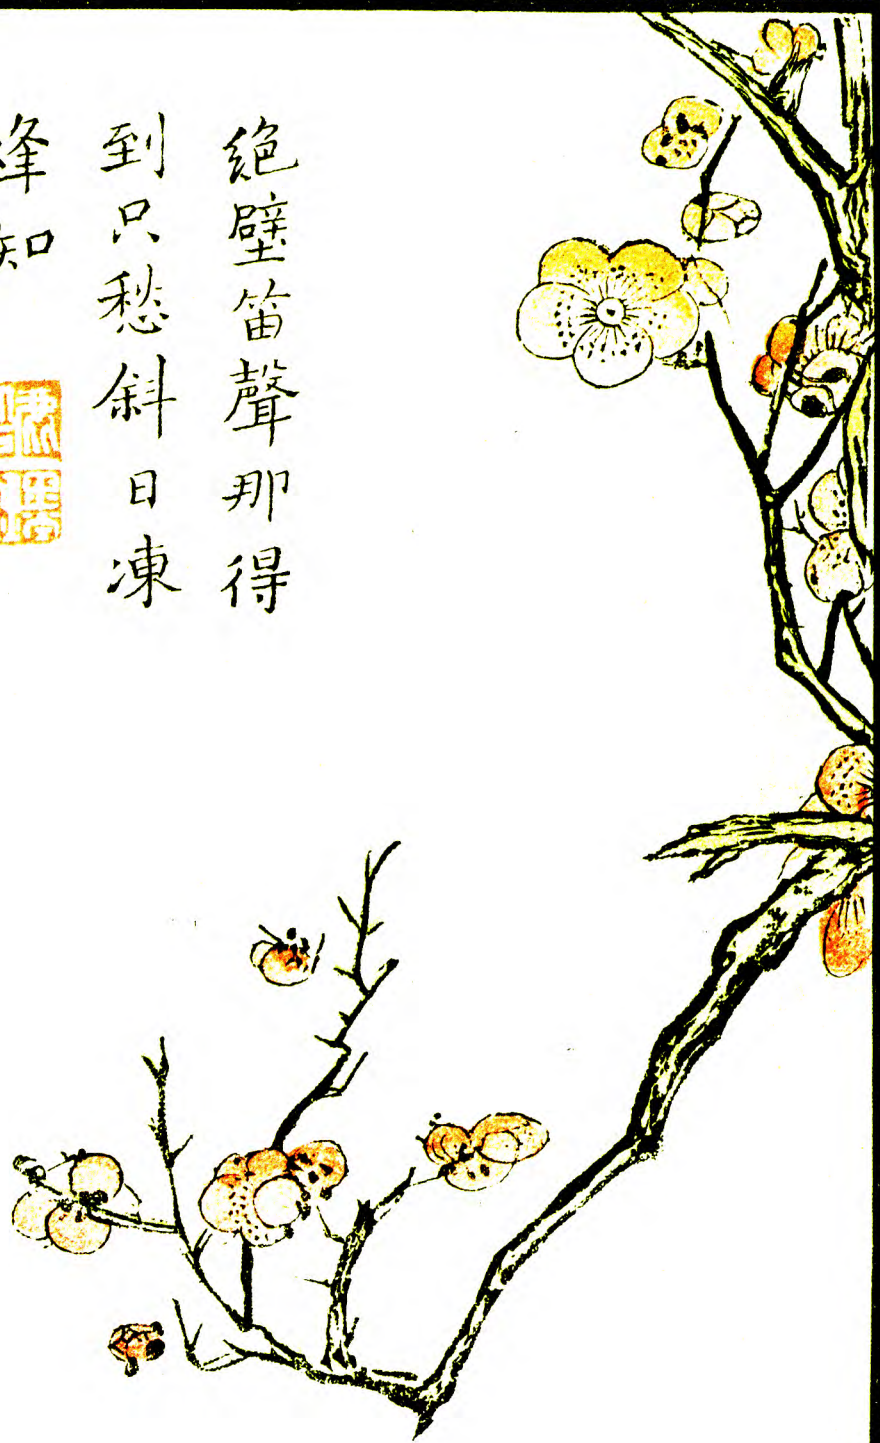 絶壁笛聲那得
到只愁斜日凍
蜂知